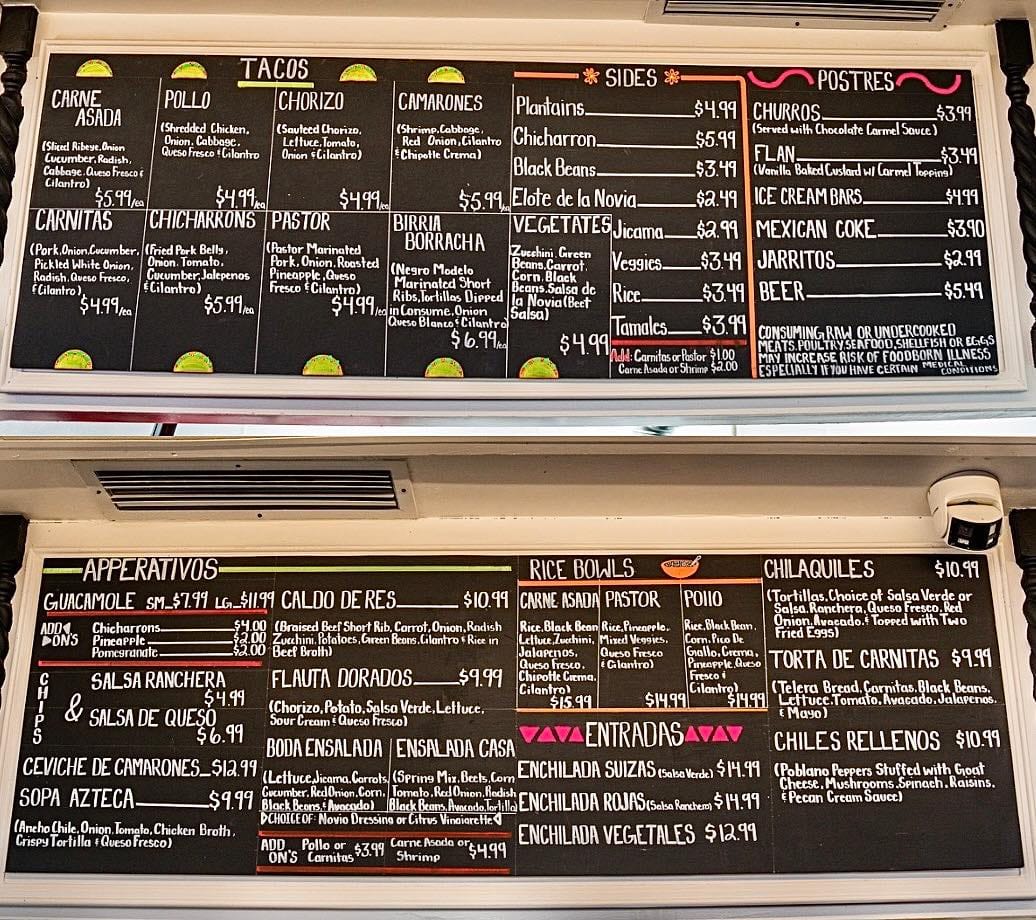 TACOS
CARNE
ASADA
(Sliced Ribeye, Onion
Cucumber, Radish,
Cabbage, Queso Fresco &
Cilantro)
$5.99/ea
POLLO
(Shredded Chicken,
Onion, Cabbage,
Queso Fresco & Cilantro
$4.99/ea
CHORIZO
(Sauteed Chorizo,
Lettuce, Tomato,
Onion & Cilantro)
$4.99/ea
CAMARONES
(Shrimp, Cabbage,
Red Onion, Cilantro
& Chipotle Crema)
$5.99/ea
CARNITAS
(Pork, Onion, Cucumber,
Pickled White Onion,
Radish, Queso Fresco,
& Cilantro)
$4.99/ea
CHICHARRONS
(Fried Pork Belly,
Onion, Tomato,
Cucumber, Jalepenos
& Cilantro)
$5.99/ea
PASTOR
(Pastor Marinated
Pork, Onion, Roasted
Pineapple, Queso
Fresco & Cilantro)
$4.99/ea
BIRRIA
BORRACHA
(Negro Modelo
Marinated Short
Ribs, Tortillas Dipped
in Consume, Onion
Queso Blanco & Cilantro
$6.99/ea
VEGETATES
Zucchini, Green
Beans, Carrot,
Corn, Black
Beans, Salsa de
la Novia (Beet
Salsa)
$4.99
SIDES
Plantains $4.99
Chicharron $5.99
Black Beans $3.49
Elote de la Novia $2.49
Jicama $2.99
Veggies $3.49
Rice $3.49
Tamales $3.99
Add: Carnitas or Pastor $1.00
Carne Asada or Shrimp $2.00
POSTRES
CHURROS $3.99
(Served with Chocolate Carmel Sauce)
FLAN $3.49
(Vanilla Baked Custard w/ Carmel Topping)
ICE CREAM BARS $4.99
MEXICAN COKE $3.90
JARRITOS $2.99
BEER $5.49
CONSUMING RAW OR UNDERCOOKED
MEATS, POULTRY, SEAFOOD, SHELLFISH OR EGGS
MAY INCREASE RISK OF FOODBORN ILLNESS
ESPECIALLY IF YOU HAVE CERTAIN MEDICAL
CONDITIONS
APPERATIVOS
GUACAMOLE SM_$7.99 LG_$11.99
ADD
ON'S
Chicharrons $4.00
Pineapple $2.00
Pomegranate $2.00
CHIPS
&
SALSA RANCHERA
$4.99
SALSA DE QUESO
$6.99
CEVICHE DE CAMARONES $12.99
SOPA AZTECA $9.99
(Ancho Chile, Onion, Tomato, Chicken Broth,
Crispy Tortilla & Queso Fresco)
CALDO DE RES $10.99
(Braised Beef Short Rib, Carrot, Onion, Radish
Zucchini, Potatoes, Green Beans, Cilantro & Rice in
Beef Broth)
FLAUTA DORADOS $9.99
(Chorizo, Potato, Salsa Verde, Lettuce,
Sour Cream & Queso Fresco)
BODA ENSALADA
(Lettuce, Jicama, Carrots,
Cucumber, Red Onion, Corn,
Black Beans, & Avocado)
ENSALADA CASA
(Spring Mix, Beets, Corn
Tomato, Red Onion, Radish
Black Beans, Avocado, Tortilla
CHOICE OF: Novio Dressing or Citrus Vinaigrette
ADD
ON'S
Pollo or
Carnitas $3.99
Carne Asada or
Shrimp $4.99
RICE BOWLS
CARNE ASADA
Rice, Black Bean
Lettuce, Zucchini,
Jalapenos,
Queso Fresco,
Chipotle Crema,
Cilantro)
$15.99
PASTOR
Rice, Pineapple,
Mixed Veggies,
Queso Fresco
& Cilantro)
$14.99
POllO
Rice, Black Bean,
Corn, Pico De
Gallo, Crema,
Pineapple, Queso
Fresco &
Cilantro)
$14.99
ENTRADAS
ENCHILADA SUIZAS (Salsa Verde) $14.99
ENCHILADA ROJAS (Salsa Ranchera) $14.99
ENCHILADA VEGETALES $12.99
CHILAQUILES $10.99
(Tortillas, Choice of Salsa Verde or
Salsa Ranchera, Queso Fresco, Red
Onion, Avocado, & Topped with Two
Fried Eggs)
TORTA DE CARNITAS $9.99
(Telera Bread, Carnitas, Black Beans,
Lettuce, Tomato, Avocado, Jalapenos,
& Mayo)
CHILES RELLENOS $10.99
(Poblano Peppers Stuffed with Goat
Cheese, Mushrooms, Spinach, Raisins,
& Pecan Cream Sauce)